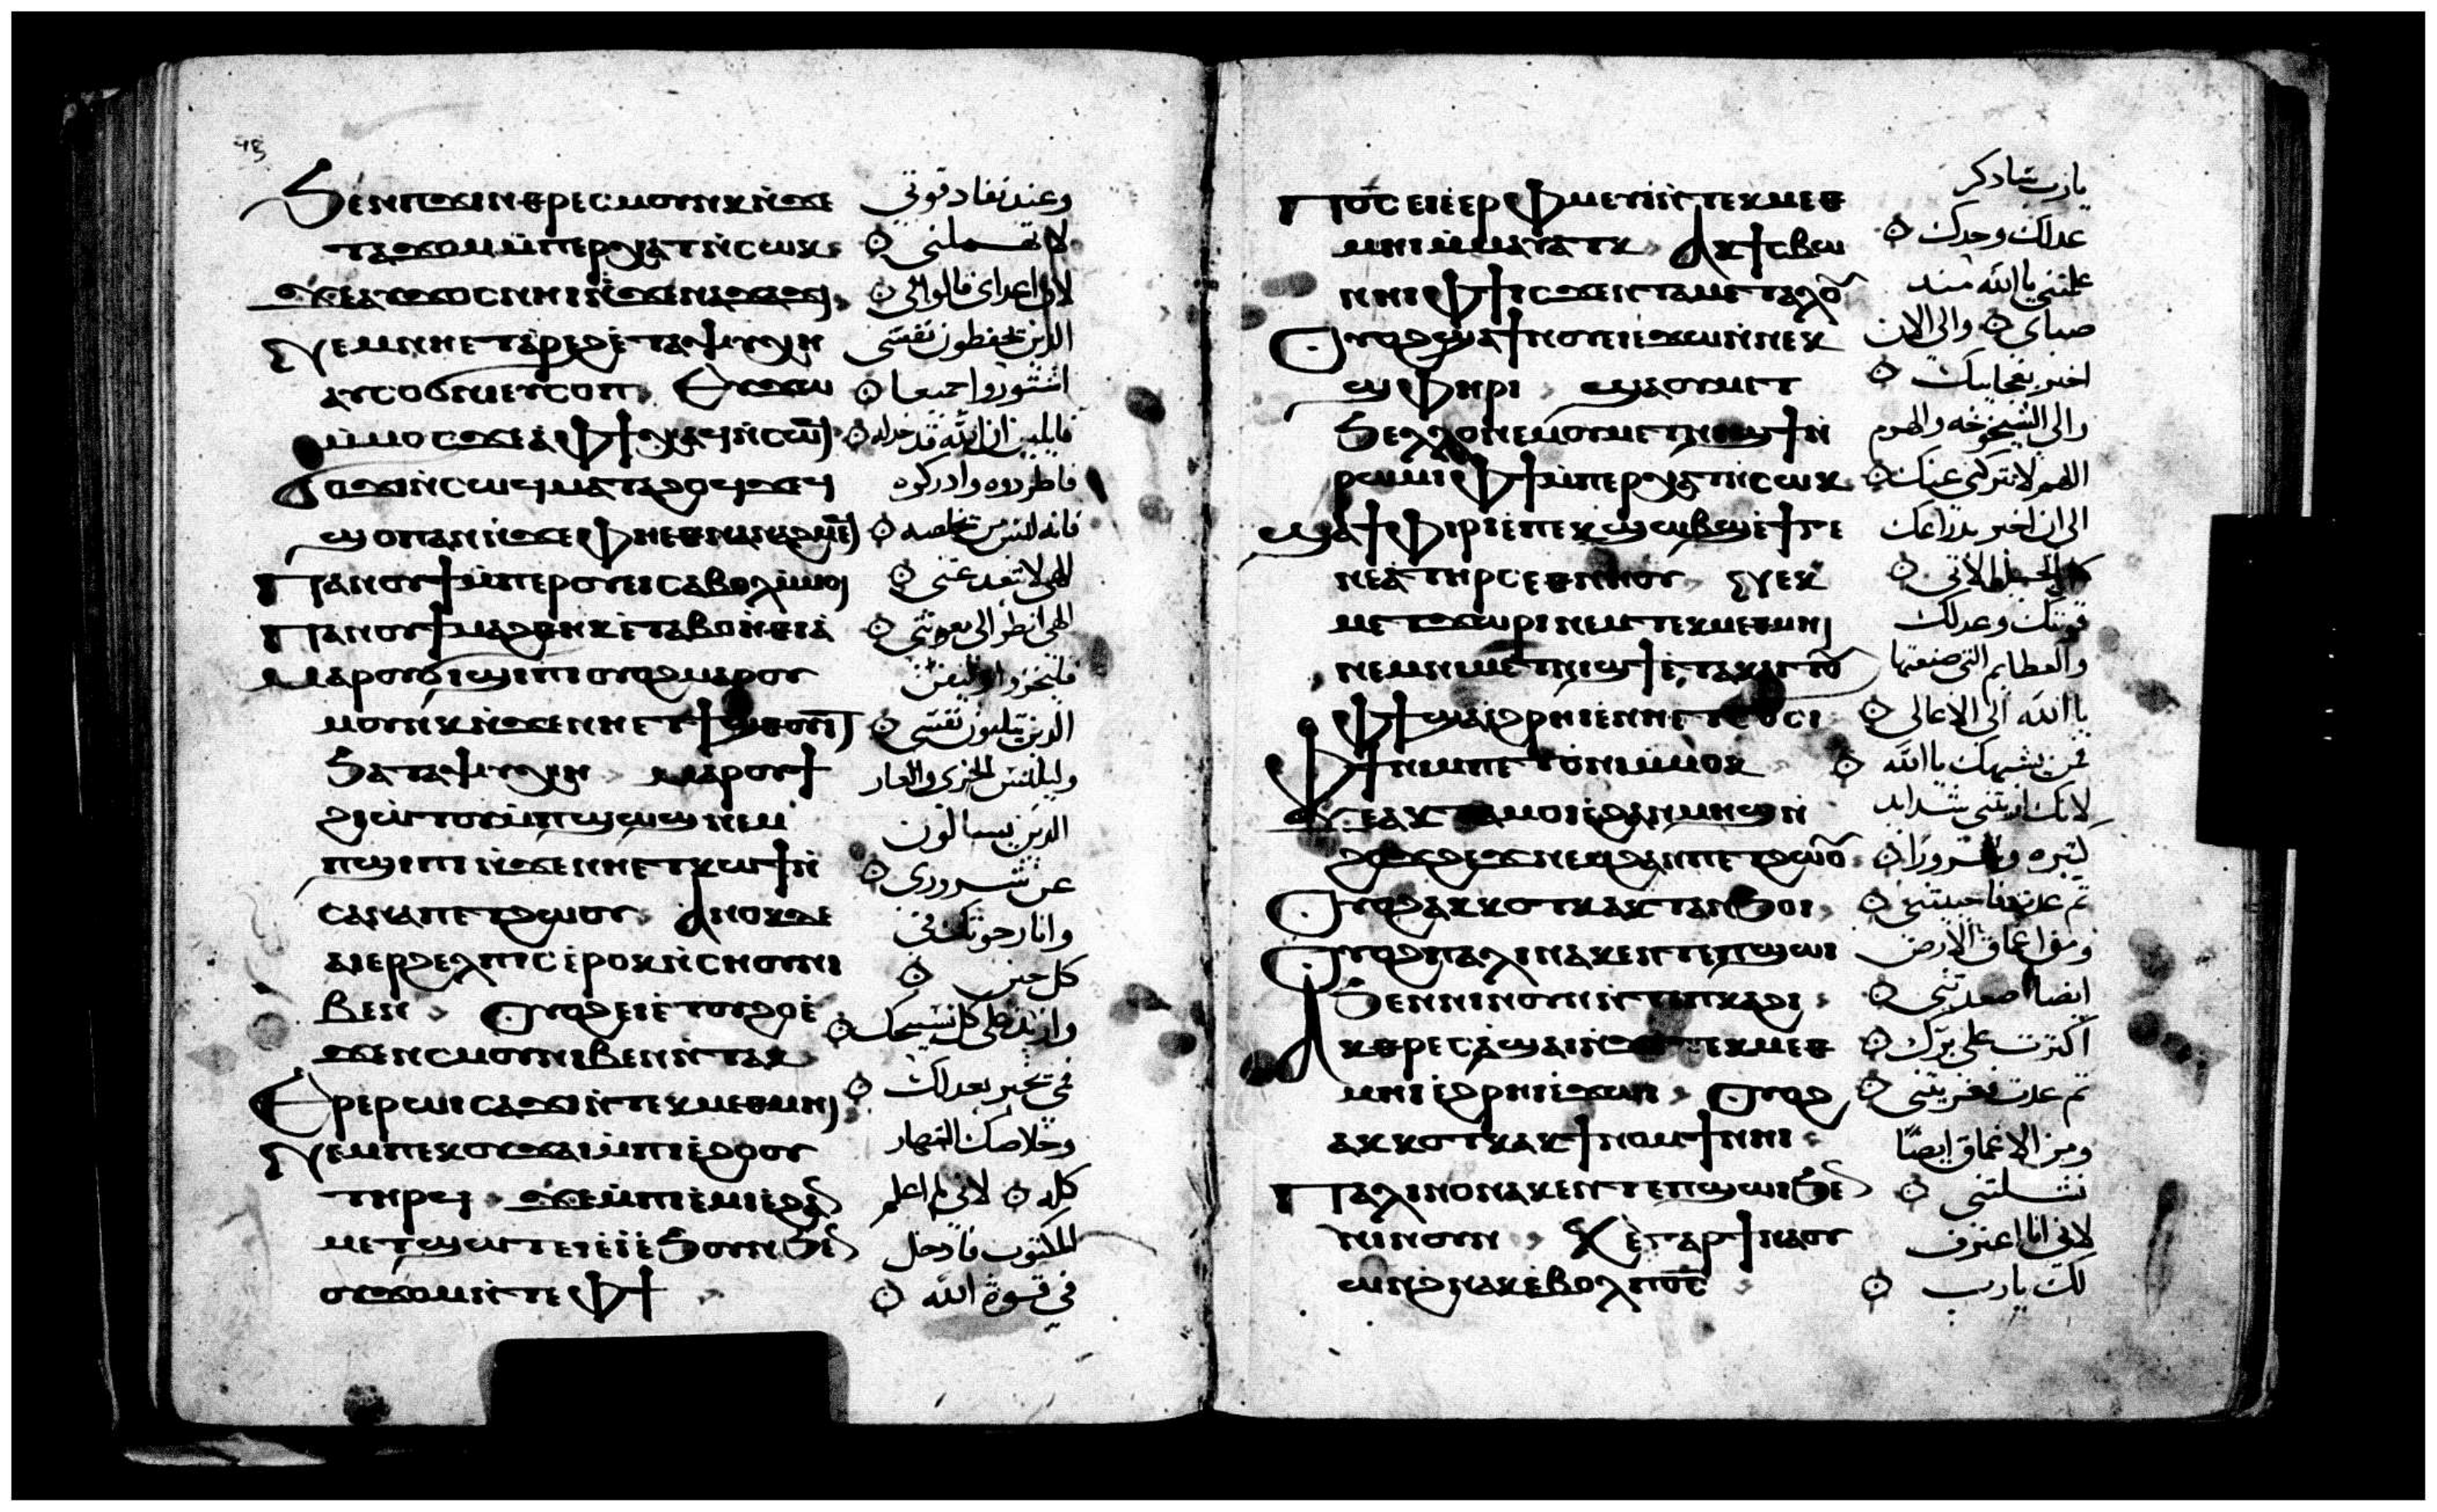 ϧⲉⲛⲡϫⲓⲛⲑⲣⲉⲥⲙⲟⲩⲛⲕⲛ̀ϫⲉ
ⲧⲁϫⲟⲙ ⲙ̀ⲡⲉⲣⲭⲁⲧ ⲛ̀ⲥⲱⲕ
ϫⲉⲁⲩϫⲟⲥ ⲛⲏⲓ ⲛ̀ϫⲉⲛⲁϫⲁϫⲓ
ⲛⲉⲙⲛⲏⲉⲧⲁ̀ⲣⲉϩ ⲉ̀ⲧⲁⲯⲩⲭⲏ
ⲁⲩⲥⲟϭⲛⲓ ⲉⲩⲥⲟⲡ ⲉⲩϫⲱ
ⲙ̀ⲙⲟⲥ ϫⲉⲁ̀ⲫϯ ⲭⲁϥ ⲛ̀ⲥⲱϥ
ϭⲟϫⲓ ⲛ̀ⲥⲱϥ ⲙⲁⲧⲁϩⲟϥ ϫⲉϥ
ϣⲟⲡ ⲁⲛ ⲛ̀ϫⲉⲫⲏⲉⲑⲛⲁⲛⲁϩⲙⲉϥ
ⲡⲁⲛⲟⲩϯ ⲙ̀ⲡⲉⲣⲟⲩⲉⲓ ⲥⲁⲃⲟⲗ ⲙ̀ⲙⲟⲓ
ⲡⲁⲛⲟⲩϯ ⲙⲁϩⲑⲏⲕ ⲉ̀ⲧⲁⲃⲟⲏ̀ⲑⲓⲁ̀
ⲙⲁⲣⲟⲩϭⲓϣⲓⲡⲓ ⲟⲩⲟϩ ⲙⲁⲣⲟⲩ
ⲙⲟⲩⲛⲕ ⲛ̀ϫⲉⲛⲛⲏⲉⲧϯϣⲉⲟⲩⲓ
ϧⲁⲧⲁⲯⲩⲭⲏ ⲙⲁⲣⲟⲩϯ
ϩⲓⲱⲧⲟⲩ ⲙ̀ⲡϣⲱϣ ⲛⲉⲙ
ⲡϣⲓⲡⲓ ⲛ̀ϫⲉⲛⲛⲏⲉⲧⲕⲱϯ ⲛ̀
ⲥⲁⲛⲁⲡⲉⲧϩⲱⲟⲩ ⲁⲛⲟⲕ ⲇⲉ
ⲁⲓⲉⲣϩⲉⲗⲡⲓⲥ ⲉ̀ⲣⲟⲕ ⲛ̀ⲥⲏⲟⲩ ⲛⲓ
ⲃⲉⲛ ⲟⲩⲟϩ ⲉⲓⲉ̀ⲧⲟⲩϩⲟ ⲉ̀
ϫⲉⲛⲥⲙⲟⲩ ⲛⲓⲃⲉⲛ ⲛ̀ⲧⲁⲕ
ⲉⲣⲉⲣⲱⲓ ⲥⲁϫⲓ ⲛ̀ⲧⲉⲕⲙⲉⲑⲙⲏⲓ
ⲛⲉⲙⲡⲉⲕⲟⲩϫⲁⲓ ⲙ̀ⲡⲓⲉ̀ϩⲟⲟⲩ
ⲧⲏⲣϥ ϫⲉⲙ̀ⲡⲓⲉ̀ⲙⲓ ⲉ̀ϩⲁⲛ
ⲙⲉⲧϣⲱⲧ ⲉⲓⲉ̀ⲓ̀ ⲉ̀ϧⲟⲩⲛ ϧⲉⲛ
ⲟⲩϫⲟⲙ ⲛ̀ⲧⲉⲫϯ
وعند نفاد قوتي
لا تهملني
لان اعداى قالوا لي
الذين يحفظون نفسي
اشتوروا جميعا
قايلين ان الله قد خذله
فاطردوه وادركوه
فانه ليس من يخلصه
الهي لا تبعد عني
الهي انظر الى معونتي
فليخزوا وليفن
الذين يثلبون نفسي
وليلبس الخزي والعار
الذين يسالون
عن شروري
وانا رجوتك في
كل حين
وازيد على كل تسبيحك
فمي يخبر بعدلك
وخلاصك النهار
كله لاني لم اعلم
المكتوب فادخل
في قوة الله
ⲡⲟ̅ⲥ̅ ⲉⲓⲉ̀ⲉⲣⲫⲙⲉⲩⲓ ⲛ̀ⲧⲉⲕⲙⲉⲑ
ⲙⲏⲓ ⲙ̀ⲙⲁⲩⲁⲧⲕ ⲁⲕϯⲥⲃⲱ
ⲛⲏⲓ ⲫϯ ⲓⲥϫⲉⲛⲧⲁⲙⲉⲧⲁⲗⲟⲩ
ⲟⲩⲟϩ ϣⲁϯⲛⲟⲩ ⲉⲓⲉ̀ϫⲱ ⲛ̀ⲛⲉⲕ
ϣⲫⲏⲣⲓ ϣⲁⲟⲩⲙⲉⲧ
ϧⲉⲗⲗⲟ ⲛⲉⲙⲟⲩⲙⲉⲧⲛⲓϣϯ ⲛ̀
ⲣⲱⲙⲓ ⲫϯ ⲙ̀ⲡⲉⲣⲭⲁⲧ ⲛ̀ⲥⲱⲕ
ϣⲁϯⲫⲓⲣⲓ ⲉ̀ⲡⲉⲕϣⲱⲃϣ ⲉ̀ϯⲅⲉ
ⲛⲉⲁ̀ ⲧⲏⲣⲥ ⲉⲑⲛⲏⲟⲩ ⲛⲉⲕ
ⲙⲉⲧϫⲱⲣⲓ ⲛⲉⲙⲧⲉⲕⲙⲉⲑⲙⲏⲓ
ⲛⲉⲙⲛⲓⲙⲉⲧⲛⲓϣϯ ⲉ̀ⲧⲁⲕⲁⲓⲧⲟⲩ
ⲫϯ ϣⲁⲉ̀ϩⲣⲏⲓ ⲉ̀ⲛⲏⲉⲧϭⲟⲥⲓ
ⲫϯ ⲛⲓⲙ ⲡⲉⲧⲟ̀ⲛⲓ ⲙ̀ⲙⲟⲕ
ϫⲉⲁⲕⲧⲁⲙⲟⲓ ⲉ̀ϩⲁⲛⲙⲏϣ ⲛ̀
ϩⲟϫϩⲉϫ ⲛⲉⲙϩⲁⲛⲡⲉⲧϩⲱⲟⲩ
ⲟⲩⲟϩ ⲁⲕⲕⲟⲧⲕ ⲁⲕⲧⲁⲛϧⲟⲓ
ⲟⲩⲟϩ ⲡⲁⲗⲓⲛ ⲁⲕⲉⲛⲧ ⲉ̀ⲡϣⲱⲓ
ϧⲉⲛⲛⲓⲛⲟⲩⲛ ⲛ̀ⲧⲉⲡⲕⲁϩⲓ
ⲁⲕⲑⲣⲉⲥⲁ̀ϣⲁⲓ ⲛ̀ϫⲉⲧⲉⲕⲙⲉⲑ
ⲙⲏⲓ ⲉ̀ϩⲣⲏⲓ ⲉ̀ϫⲱⲓ ⲟⲩⲟϩ
ⲁⲕⲕⲟⲧⲕ ⲁⲕϯⲛⲟⲙϯ ⲛⲏⲓ
ⲡⲁⲗⲓⲛ ⲟⲛ ⲁⲕⲉⲛⲧ ⲉ̀ⲡϣⲱⲓ ϧⲉⲛ
ⲛⲓⲛⲟⲩⲛ ⲕⲉ ⲅⲁⲣ ϯⲛⲁⲟⲩ
ⲱⲛϩ ⲛⲁⲕ ⲉ̀ⲃⲟⲗ ⲡⲟ̅ⲥ̅
يا رب ساذكر
عدلك وحدك
علمتني يا الله منذ
صباى والى الان
اخبر بعجايبك
والى الشيخوخه والهرم
اللهم لا تتركني عنك
الى ان اخبر بذراعك
كل الجيل الاتي
قوتك وعدلك
والعظايم التي صنعتها
يا الله الى الاعالى
فمن يشبهك يا الله
لانك اريتني شدايد
كثيره وشرورا
ثم عدت فاحييتني
ومن اعماق الارض
ايضا اصعدتني
اكثرت على برك
ثم عدت فعزيتني
ومن الاعماق ايضا
نشلتني
لاني انا اعترف
لك يا رب